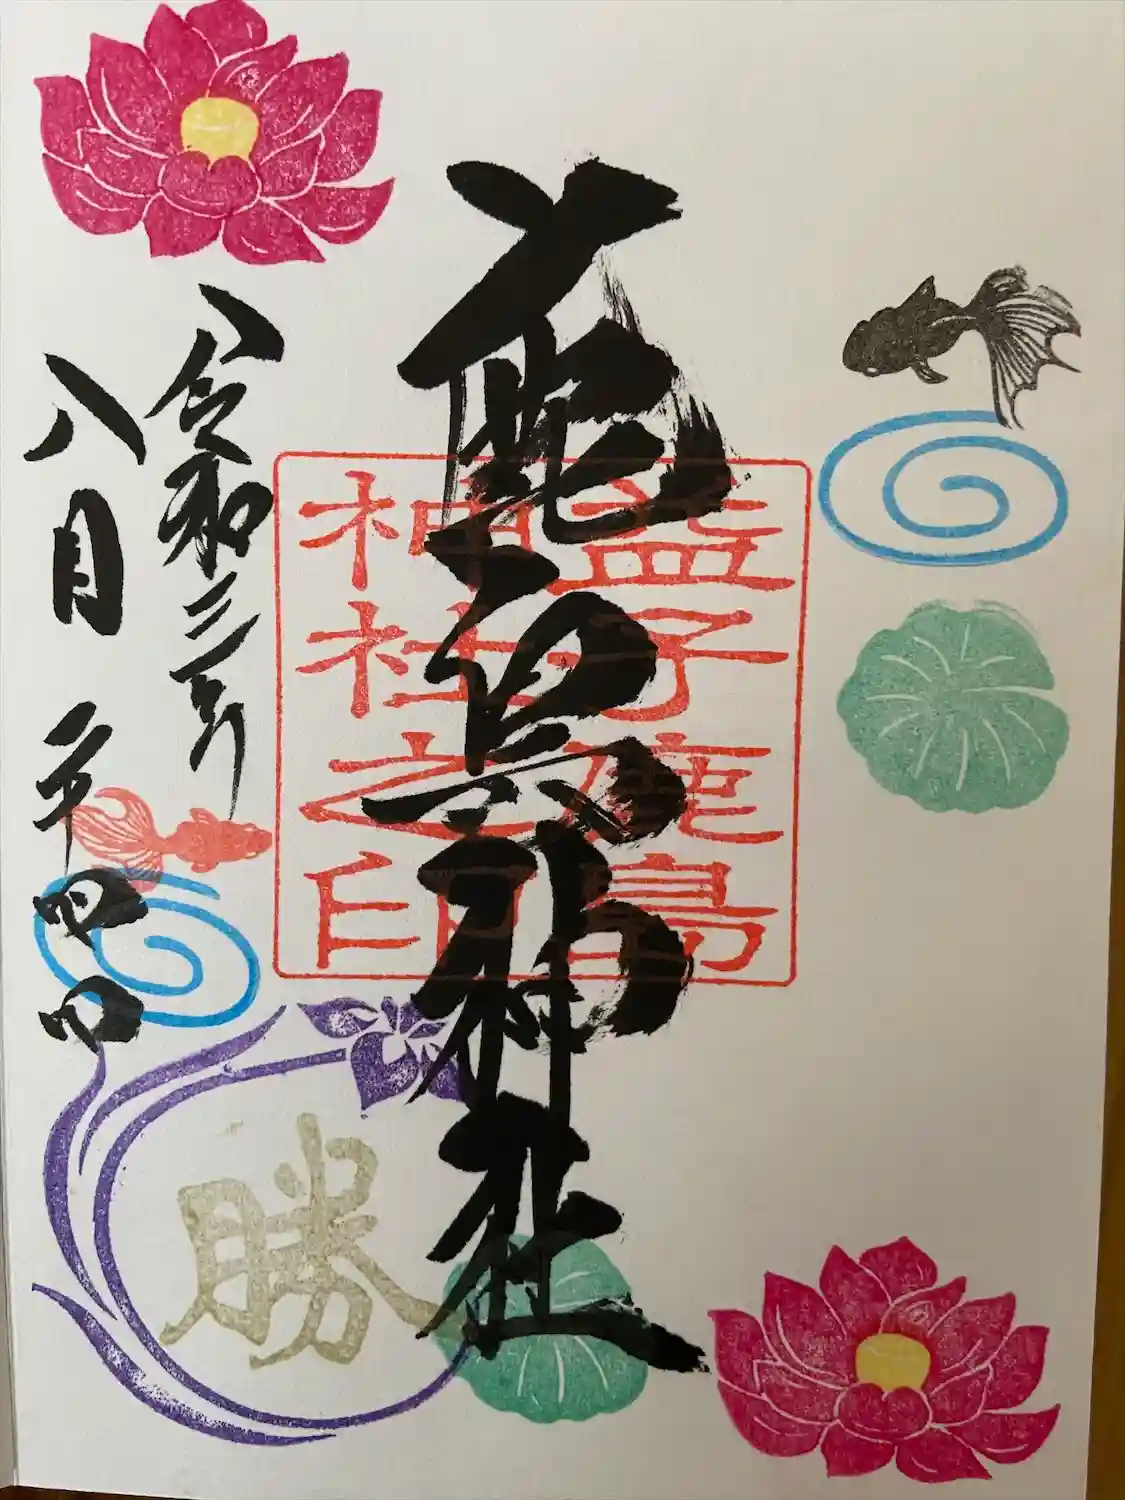 鹿島神社
益子鹿島
神社之印
令和三年
八月二十四日
勝